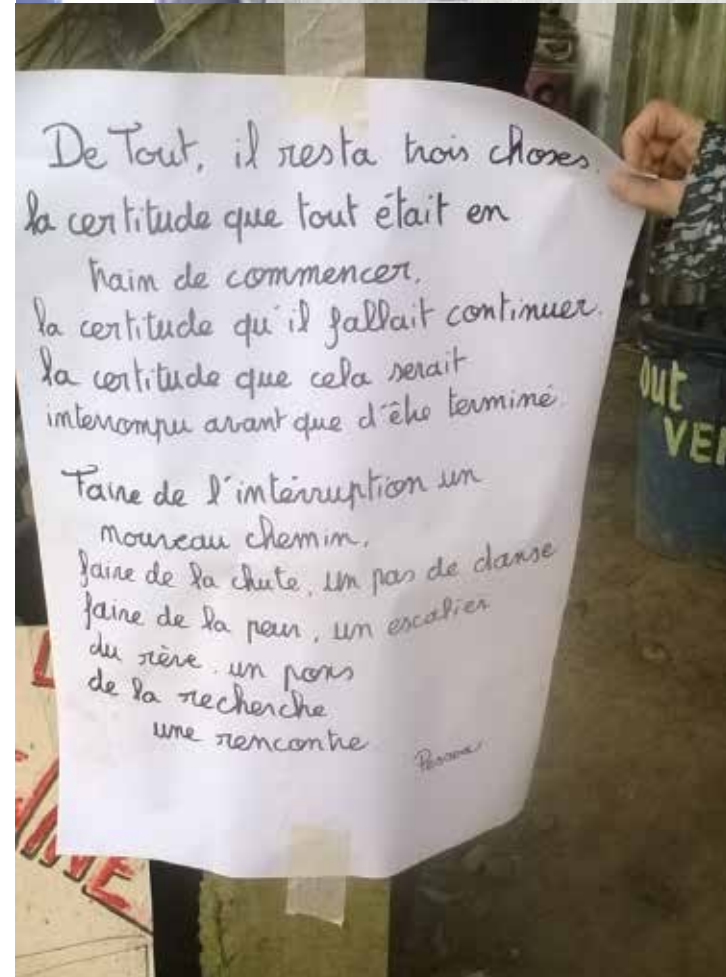 De Tout, il resta trois choses.
la certitude que tout était en
train de commencer.
la certitude qu'il fallait continuer.
la certitude que cela serait
interrompu avant que d'être terminé.
Faire de l'intérruption un
nouveau chemin.
faire de la chute, un pas de danse
faire de la peur, un escalier
du rêve. un pons
de la recherche
une rencontre.
Pessoa
out
VER
INE